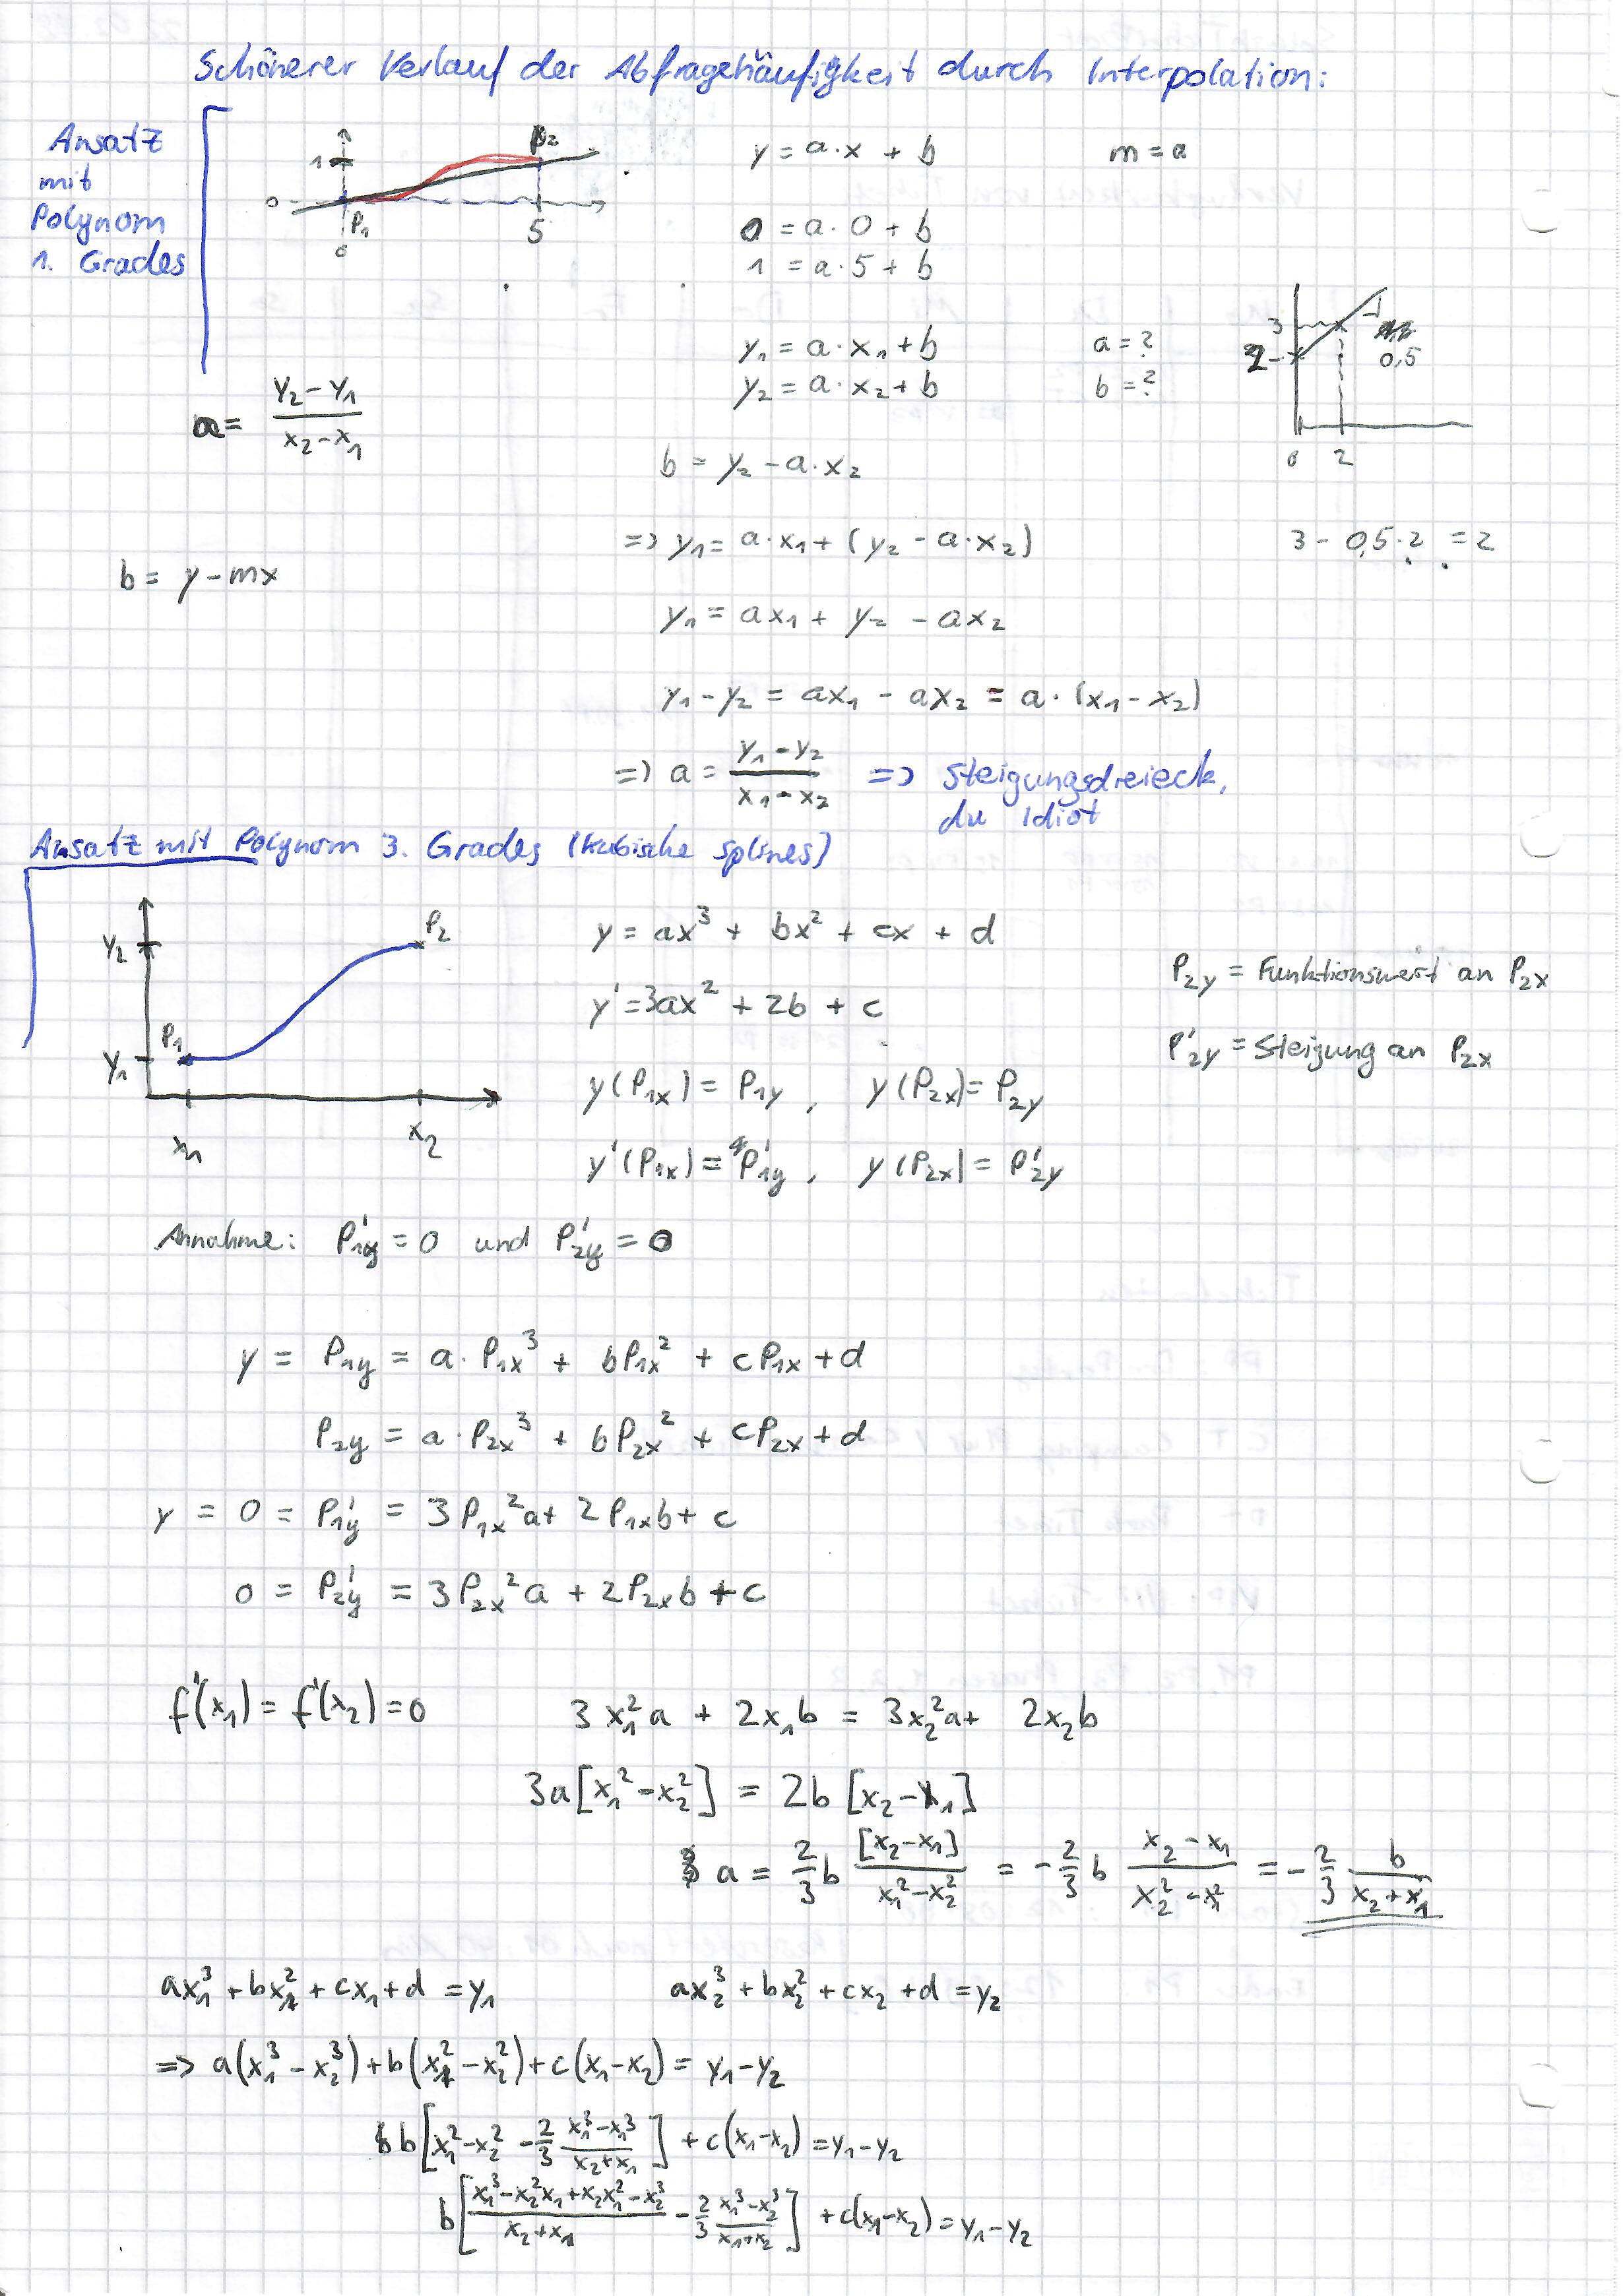 Schönerer Verlauf der Abfragehäufigkeit durch Interpolation:
Ansatz
mit
Polynom
1. Grades
1
0
P₁
0
P₂
5
y = a·x + b
m = a
0 = a·0 + b
1 = a·5 + b
y₁ = a·x₁ + b
a = ?
y₂ = a·x₂ + b
b = ?
3
2
0,5
0 2
a = (y₂ - y₁)/(x₂ - x₁)
b = y₂ - a·x₂
=> y₁ = a·x₁ + (y₂ - a·x₂)
3 - 0,5·2 = 2
b = y - mx
y₁ = ax₁ + y₂ - ax₂
y₁ - y₂ = ax₁ - ax₂ = a·(x₁ - x₂)
=> a = (y₁ - y₂)/(x₁ - x₂) => Steigungsdreieck,
du Idiot
Ansatz mit Polynom 3. Grades (kubische splines)
y₂
y₁
P₁
P₂
x₁
x₂
y = ax³ + bx² + cx + d
y' = 3ax² + 2b + c
P₂y = Funktionswert an P₂x
P'₂y = Steigung an P₂x
y(P₁x) = P₁y , y(P₂x) = P₂y
y'(P₁x) = P'₁y , y(P₂x) = P'₂y
Annahme: P'₁y = 0 und P'₂y = 0
y = P₁y = a·P₁x³ + bP₁x² + cP₁x + d
P₂y = a·P₂x³ + bP₂x² + cP₂x + d
y = 0 = P'₁y = 3P₁x²a + 2P₁xb + c
0 = P'₂y = 3P₂x²a + 2P₂xb + c
f'(x₁) = f'(x₂) = 0
3x₁²a + 2x₁b = 3x₂²a + 2x₂b
3a[x₁² - x₂²] = 2b[x₂ - x₁]
a = 2/3 b [x₂ - x₁]/(x₁² - x₂²) = -2/3 b (x₂ - x₁)/(x₂² - x₁²) = -2/3 b/(x₂ + x₁)
ax₁³ + bx₁² + cx₁ + d = y₁
ax₂³ + bx₂² + cx₂ + d = y₂
=> a(x₁³ - x₂³) + b(x₁² - x₂²) + c(x₁ - x₂) = y₁ - y₂
b[x₁² - x₂² - 2/3 (x₁³ - x₁³)/(x₂ + x₁)] + c(x₁ - x₂) = y₁ - y₂
b[(x₁³ - x₂²x₁ + x₂x₁² - x₂³)/(x₂ + x₁) - 2/3 (x₁³ - x₂³)/(x₁ + x₂)] + c(x₁ - x₂) = y₁ - y₂